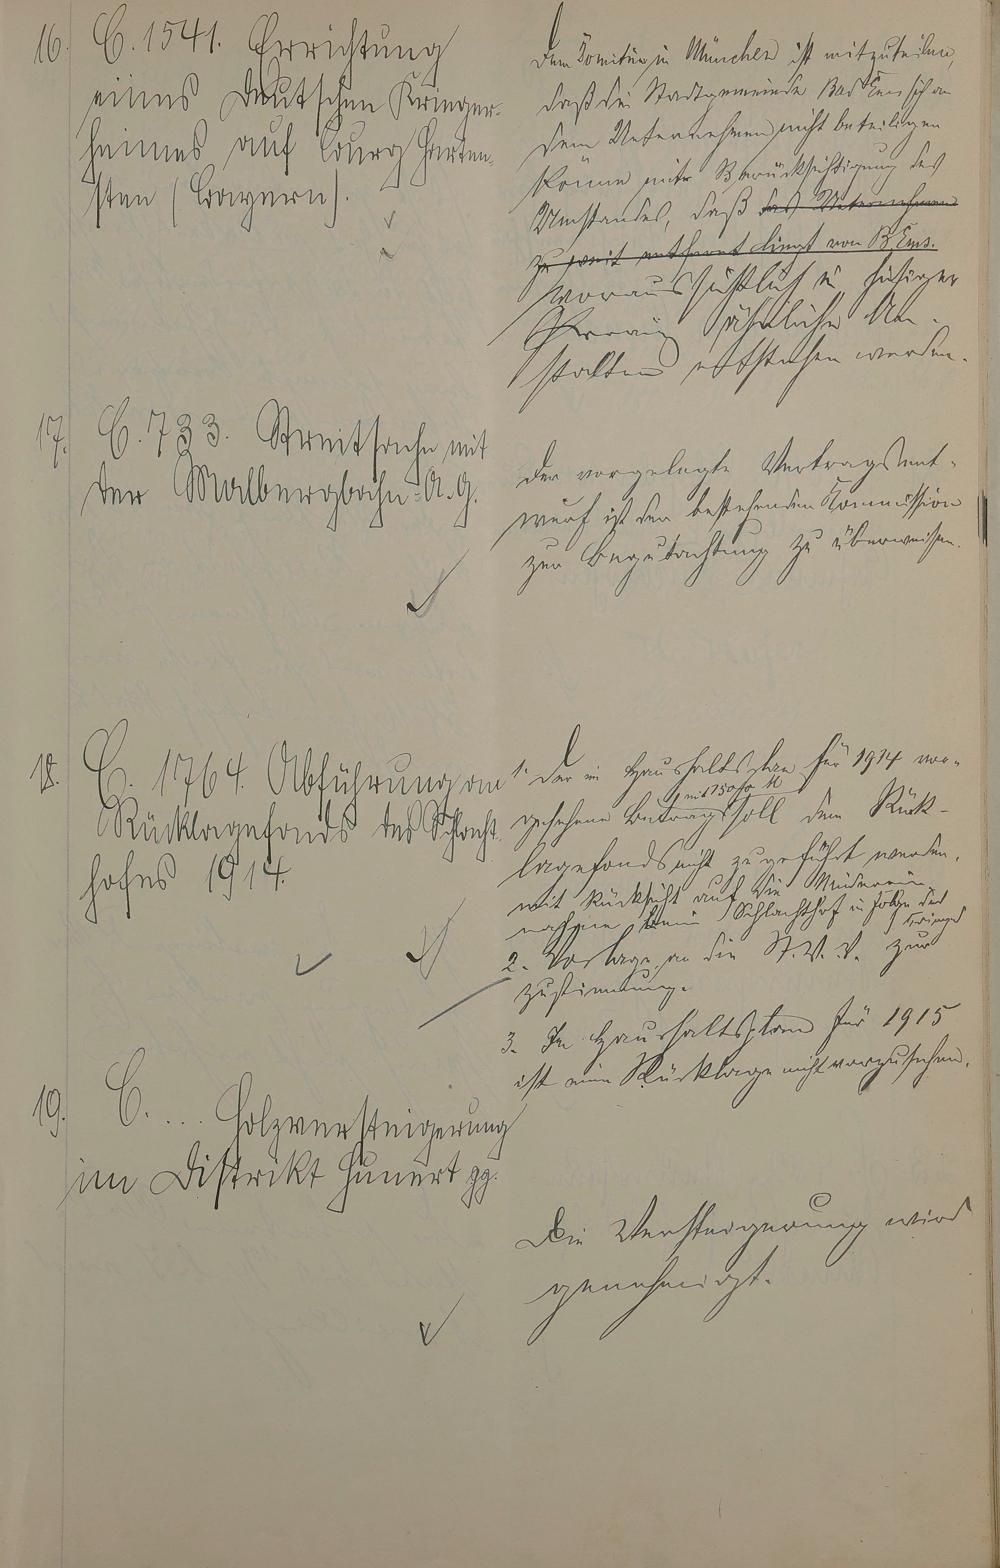 16. C. 1541. Errichtung
eines deutschen Krieger-
heimes auf Burg Harten-
stein (Bayern).
Dem Komitee in München ist mitzuteilen,
daß die Stadtgemeinde Bad Ems sich an
dem Unternehmen nicht beteiligen
könne mit Berücksichtigung des
Umstandes, daß das Unternehmen
zu weit entfernt liegt von B. Ems.
voraussichtlich in hiesiger
ähnliche An-
stalten entstehen werden.
17. C. 733. Streitsache mit
der Malbergbahn-A.G.
Der vorgelegte Vertragsent-
wurf ist der bestehenden Kommission
zur Begutachtung zu überweisen.
18. C. 1764. Abführung am
Rücklagefonds des Schlacht-
hofes 1914.
1. Der im Haushaltsplan für 1914 vor-
gesehene Betrag soll dem Rück-
lagefonds nicht zugeführt werden,
mit Rücksicht auf die Mindereín-
nahme beim Schlachthof in Folge des
Krieges
2. Vorlage an die St. V. V. zur
Zustimmung.
3. Im Haushaltsplan für 1915
ist eine Rücklage nicht vorzusehen.
19. C. ... Holzversteigerung
im Distrikt Hunert pp.
Die Versteigerung wird
genehmigt.